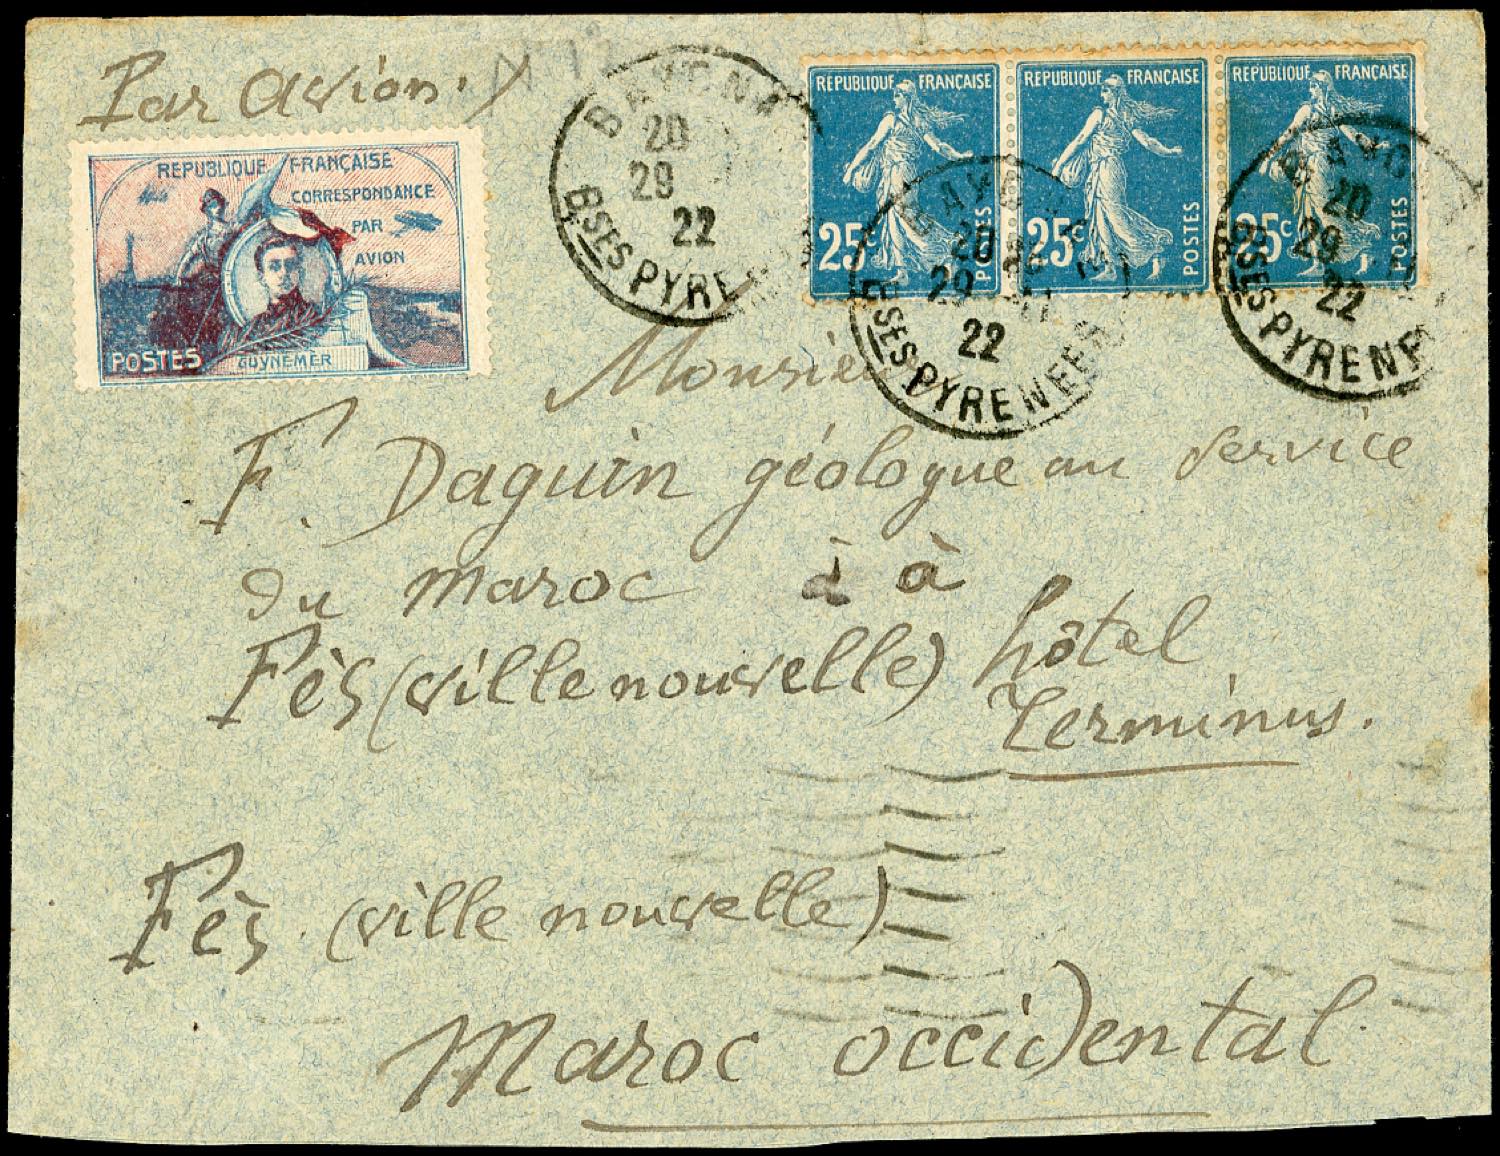 Par avion.
RÉPUBLIQUE FRANÇAISE
CORRESPONDANCE
PAR
AVION
POSTES
GUYNEMER
BAYONNE
20
29
22
BSES PYRE
RÉPUBLIQUE FRANÇAISE
25c
POSTES
RÉPUBLIQUE FRANÇAISE
25c
POSTES
RÉPUBLIQUE FRANÇAISE
25c
POSTES
BAYONNE
20
29
22
BSES PYRENEES
BAYO
20
29
22
BSES PYRENE
Monsieur
F. Daguin géologue au service
du maroc à à
Fès (ville nouvelle) hôtel
Terminus.
Fès. (ville nouvelle)
Maroc occidental.